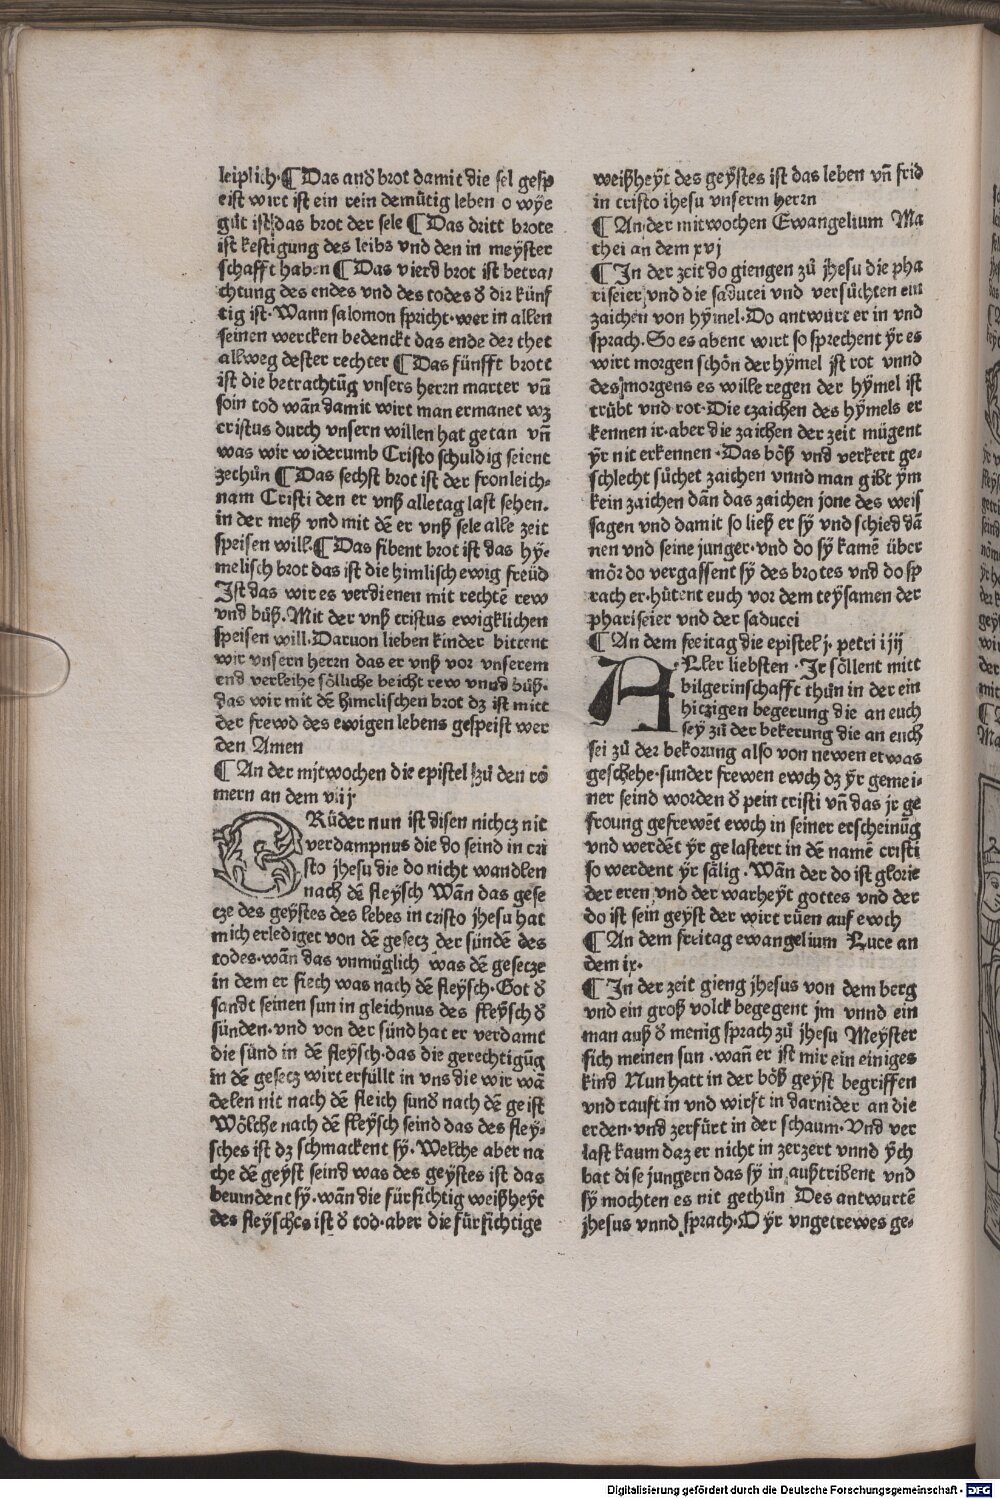 leiplich.¶Das and̾ brot damit die sel gesp
eist wirt ist ein rein demütig leben o wÿe
gůt ist das brot der sele ¶Das dritt brote
ist kestigung des leibs vnd den in meÿster
schafft haben ¶Das vierd brot ist betra/
chtung des endes vnd des todes d̾ dir künf
tig ist. Wann salomon spricht. wer in allen
seinen wercken bedenckt das ende der thet
allweg dester rechter ¶Das fünfft brott
ist die betrachtūg vnsers herrn marter vn̄
soin tod wan̄ damit wirt man ermanet wz
cristus durch vnsern willen hat getan vn̄
was wir widerumb Cristo schuldig seient
zethůn ¶Das sechst brot ist der fronleich⸗
nam Cristi den er vnß alletag last sehen.
in der meß vnd mit dē er vnß sele alle zeit
speisen will.¶Das sibent brot ist das hÿ⸗
melisch brot das ist die himlisch ewig freüd
Ist das wir es verdienen mit rechtē rew
vnd bůß. Mit der vnß cristus ewigklichen
speisen will. Daruon lieben kinder bittent
wir vnsern herrn das er vnß vor vnserem
end verleihe söliiche beicht rew vnnd bůß.
das wir mit dē himelischen brot dz ist mitt
der frewd des ewigen lebens gespeist wer
den Amen
¶ An der mitwochen die epistel zů den rö
mern an dem viij
BRüder nun ist disen nichcz nit
verdampnus die do seind in cri
sto jhesu die do nicht wandlen
nach dē fleÿsch Wan̄ das gese
cze des geÿstes des lebēs in cristo jhesu hat
mich erlediget von dē gesecz der sündē des
todes. wan̄ das vnmüglich was dē gesecze
in dem er siech was nach dē fleÿsch. Got d̾
sandt seinen sun in gleichnus des fleÿsch d̾
sünden. vnd von der sünd hat er verdamt
die sünd in dē fleÿsch. das die gerechtigūg
in dē gesecz wirt erfüllt in vns die wir wā
delen nit nach dē fleich sund̾ nach dē geist
Wölche nach dē fleÿsch seind das des fleÿ⸗
sches ist dz schmackent sÿ. Welche aber na
che dē geÿst seind was des geÿstes ist das
bevindent sÿ. wan̄ die fürsichtig weißheÿt
des fleÿsches ist d̾ tod. aber die fürsichtige
weißheÿt des geÿstes ist das leben vn̄ frid
in cristo ihesu vnserm herrn
¶ An der mitwochen Ewangelium Ma
thei an dem xvj
¶ In der zeit do giengen zů jhesu die pha
riseier vnd die saducei vnd versůchten ein
zaichen von hÿmel. Do antwürt er in vnd
sprach. So es abent wirt so sprechent ÿr es
wirt morgen schön der hÿmel jst rot vnnd
des morgens es wille regen der hÿmel ist
trübt vnd rot. Die tzaichen des hÿmels er
kennen ir. aber die zaichen der zeit mügent
ÿr nit erkennen. Das böß vnd verkert ge⸗
schlecht sůchet zaichen vnnd man gibt ÿm
kein zaichen dan̄ das zaichen jone des weis
sagen vnd damit so ließ er sÿ vnd schied dā
nen vnd seine junger. vnd do sÿ kamē über
mör do vergassent sÿ des brotes vnd do sp
rach er. hütent euch vor dem teÿsamen der
phariseier vnd der saducci
¶ An dem freitag die epistel j. petri iiij
ALler liebsten. Ir söllent mitt
bilgerinschafft thůn in der ein
hiczigen begerung die an euch
seÿ zů der bekerung die an euch
sei zů der bekorung also von newen etwas
geschehe. sunder frewen ewch dz ÿr gemei⸗
ner seind worden d̾ pein cristi vn̄ das jr ge
froung gefrewēt ewch in seiner erscheinūg
vnd werdēt ÿr gelastert in dē namē cristi
so werdent ÿr sälig. Wan̄ der do ist glorie
der eren vnd der warheÿt gottes vnd der
do ist sein geÿst der wirt rüen auf ewch
¶ An dem freitag ewangelium Luce an
dem ix.
¶ In der zeit gieng jhesus von dem berg
vnd ein groß volck begegent jm vnnd ein
man auß d̾ menig sprach zů jhesu Meÿster
sich meinen sun. wan̄ er ist mir ein einiges
kind Nun hatt in der böß geÿst begriffen
vnd rauft in vnd wirft in darnider an die
erden. vnd zerfürt in der schaum. Vnd ver
last kaum daz er nicht in zerzert vnnd ÿch
bat dise jungern das sÿ in außtribent vnd
sÿ mochten es nit gethůn Des antwurtē
jhesus vnnd sprach. O ÿr vngetrewes ge⸗
Digitalisierung gefördert durch die Deutsche Forschungsgemeinschaft - DFG